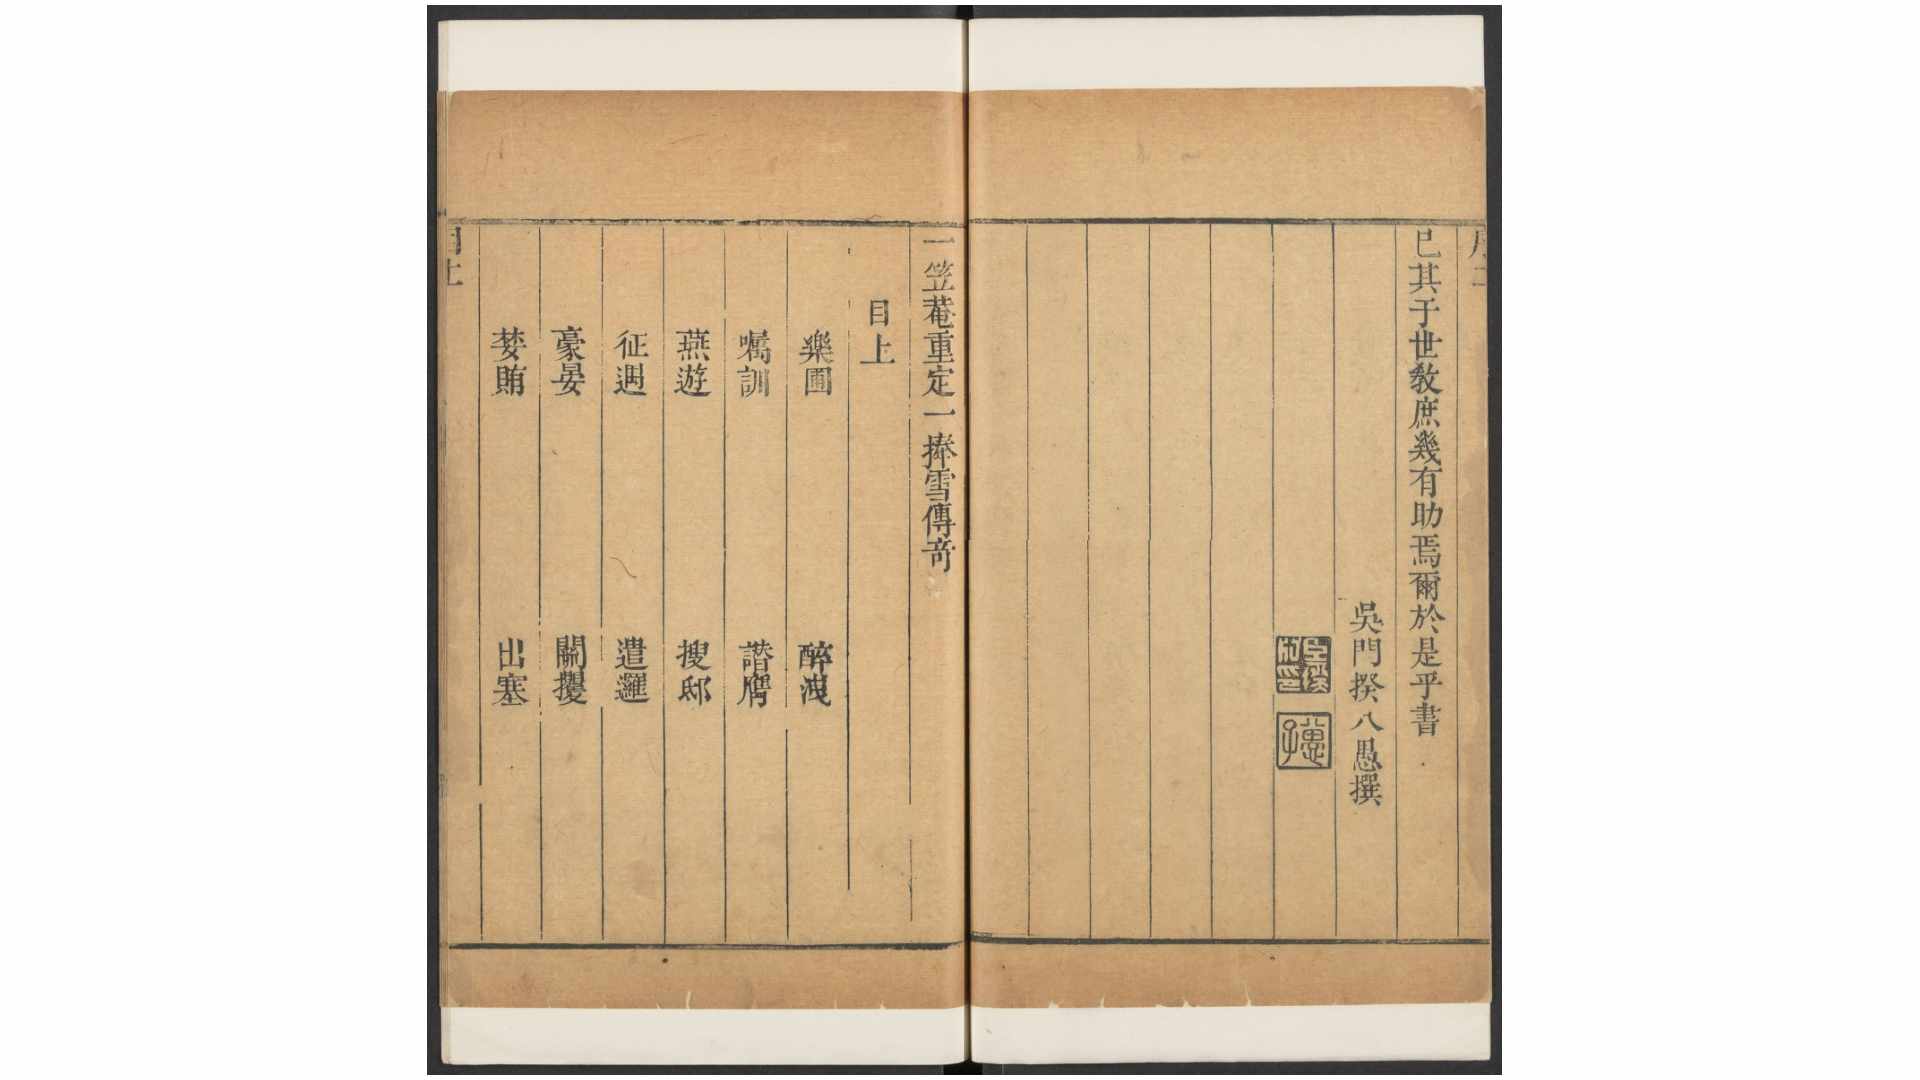 已其于世教庶幾有助焉爾於是乎書
吳門揆八愚撰
一笠菴重定一捧雪傳奇
目上
樂圃 醉洩
嘱訓 譖屑
燕遊 搜邸
征遇 遣邏
豪晏 鬧攫
婪賄 出塞